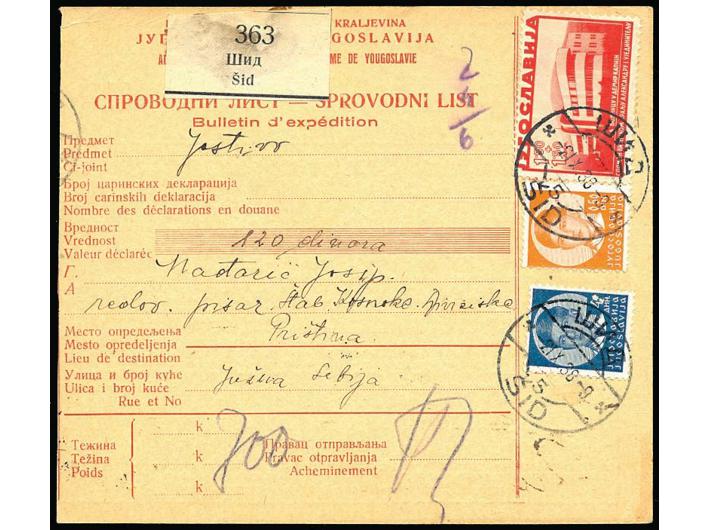 363
Шид
Šid
KRALJEVINA
GOSLAVIJA
ME DE YOUGOSLAVIE
СПРОВОДНИ ЛИСТ — SPROVODNI LIST
Bulletin d'expédition
Предмет
Predmet
Ci-joint
Број царинских декларација
Broj carinskih deklaracija
Nombre des déclarations en douane
Вредност
Vrednost
Valeur déclarée
120 dinara
Г.
А
Mađarić Josip.
redov. pisar Štab Kosovske Diviziske
Место опредељења
Mesto opredeljenja
Lieu de destination
Priština
Улица и број куће
Ulica i broj kuće
Rue et No
Južna Srbija
Тежина
Težina
Poids
k
k
k
700
Правац отправљања
Pravac otpravljanja
Acheminement
2
6
ЈУГОСЛАВИЈА
ШИД
ŠID
0.50
ЈУГОСЛАВИЈА
JUGOSLAVIJA
ЈУГОСЛАВИЈА
JUGOSLAVIJA
ШИД
ŠID